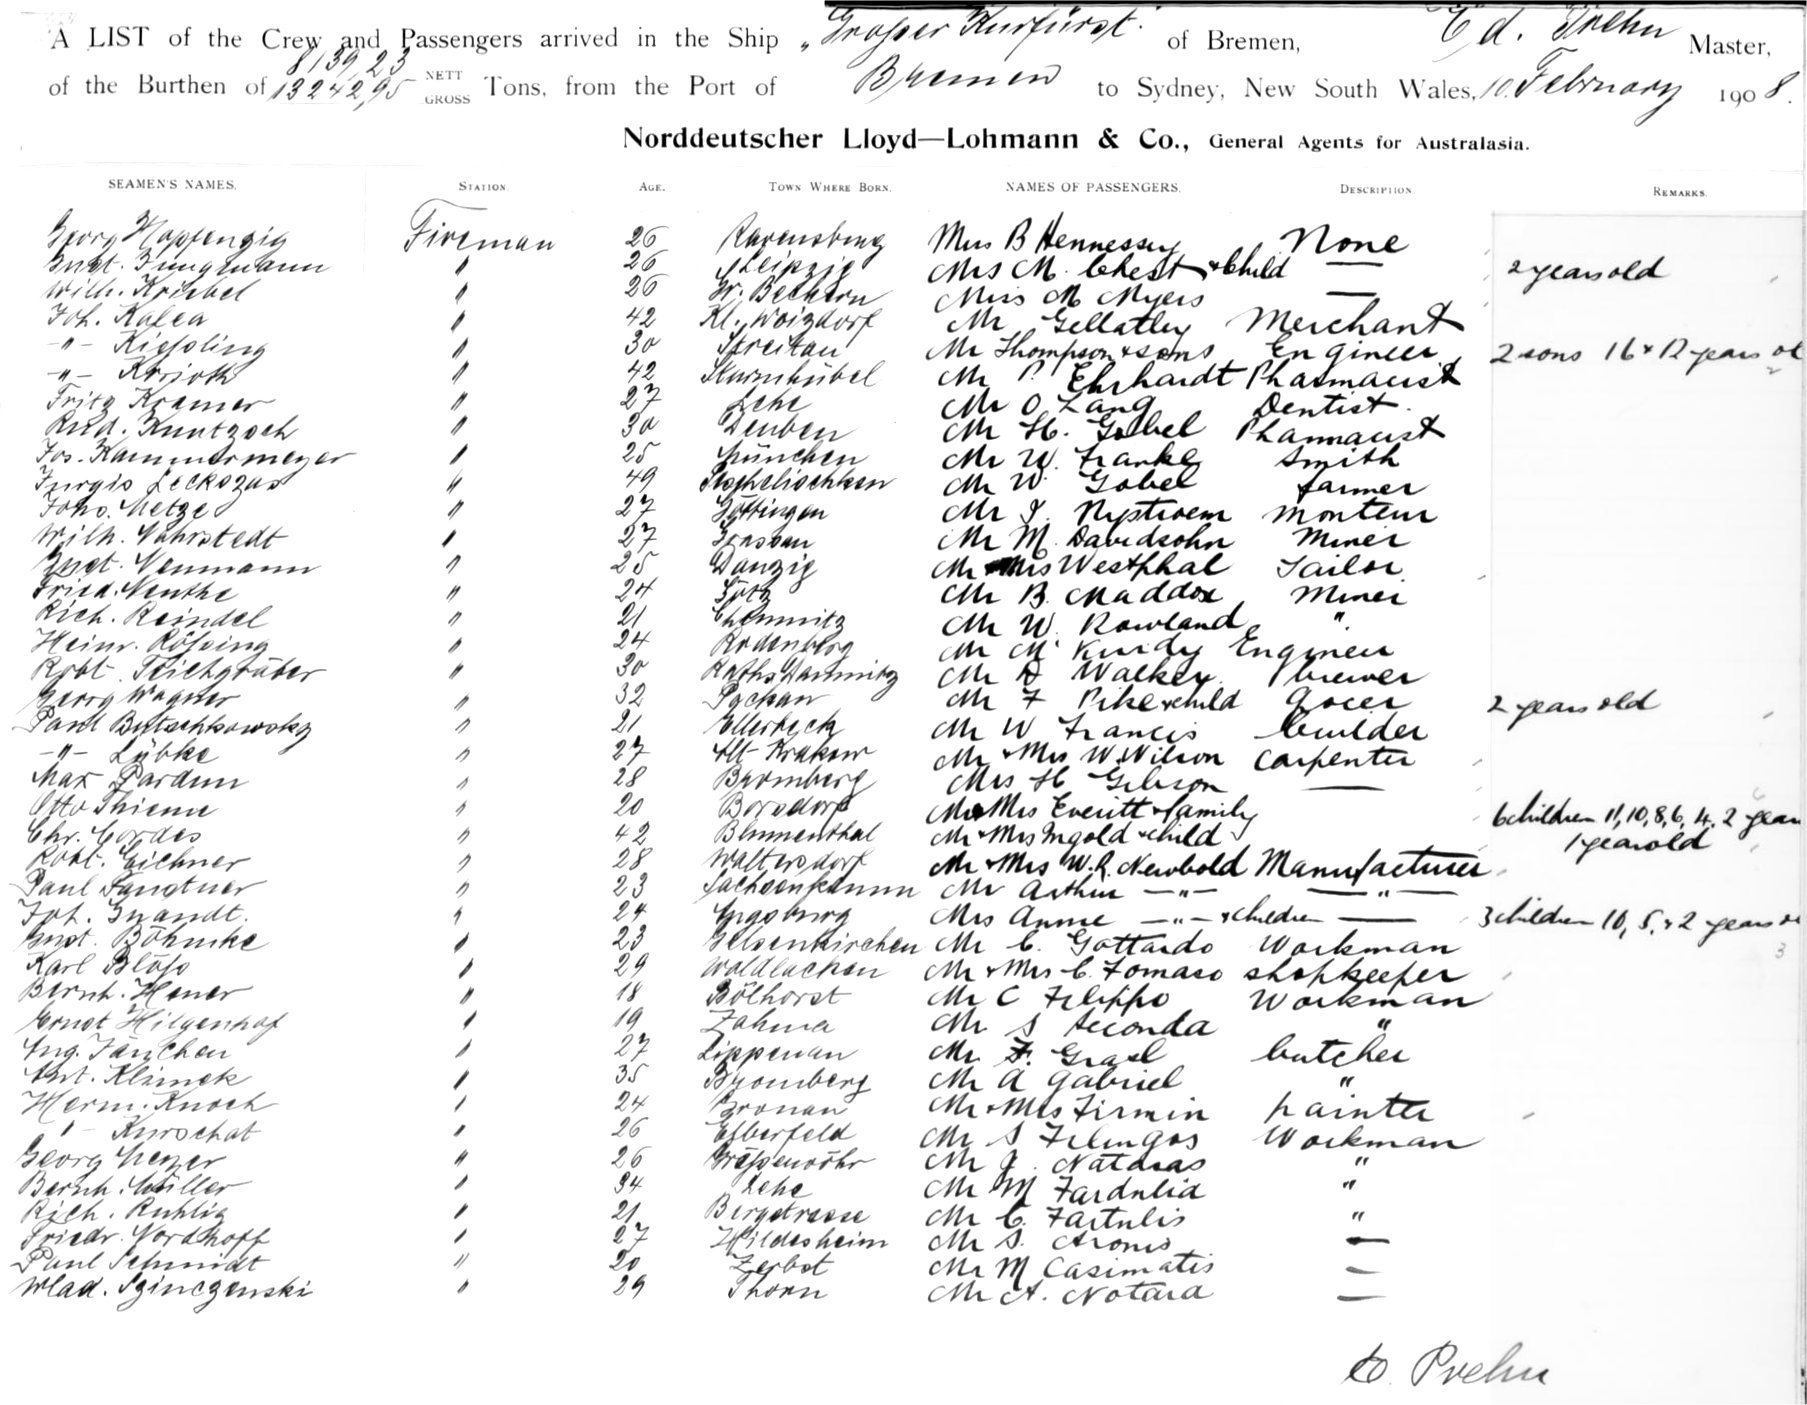 A LIST of the Crew and Passengers arrived in the Ship „Grosser Kurfürst" of Bremen, Ed. Prehn Master,
of the Burthen of 8139,23 NETT 13242,95 GROSS Tons, from the Port of Bremen to Sydney, New South Wales, 10. February 1908.
Norddeutscher Lloyd—Lohmann & Co., General Agents for Australasia.
SEAMEN'S NAMES. STATION AGE. TOWN WHERE BORN. NAMES OF PASSENGERS. DESCRIPTION REMARKS.
Georg Hopfenzig Fireman 26 Ravensburg Mrs B Hennessy None
Gust. Jungmann " 26 Leipzig Mrs M. Chest & Child — 2 years old
Wilh. Kriebel " 26 Gr. Beckern Miss M Myers —
Joh. Kalea " 42 Kl. Woizdorf Mr Gellatley Merchant
-"- Kießling " 30 Streitau Mr Thompson & sons Engineer 2 sons 16 & 12 years
-"- Krrioth " 42 Mr P. Ehrhardt Pharmacist
Fritz Kramer " 27 Lehe Mr O Lang Dentist.
Rud. Kuntzsch " 30 Deuben Mr H. Gobel Pharmacist
Jos. Kammermeyer " 25 München Mr W. Franke Smith
Jurgis Leckszas " 49 Mr W. Gobel farmer
Johs. Metze " 27 Göttingen Mr J. Nystroem Monteur
Wilh. Nährstedt " 27 Grassau Mr M. Davidsohn Miner
Gust. Neumann " 25 Danzig Mr & Mrs Westphal Tailor
Fried. Nenthe " 24 Mr B. Maddox Miner
Rich. Reindel " 21 Chemnitz Mr W. Rowland "
Heinr. Rößing " 24 Rodenberg Mr Mc Kurdy Engineer
Robt. Teichgräber " 30 Mr D Walkey. brewer
Georg Wagner " 32 Mr F Pike & child Grocer 2 years old
Paul Butschkowsky " 21 Ellerbeck Mr W Francis builder
-"- Lübke " 27 Alt Krakow Mr & Mrs W. Wilson Carpenter
Max Pardun " 28 Bromberg Mrs H Gibson —
Otto Thieme " 20 Borsdorf Mr & Mrs Everitt & family 6 children 11, 10, 8, 6, 4, 2 years
Chr. Cordes " 42 Blumenthal Mr & Mrs Ingold & child 1 year old
Robt. Eichner " 28 Waltersdorf Mr & Mrs W. R. Newbold Manufacturer
Paul Fangtner " 23 Mr Arthur —"— —"—
Joh. Gnandt. " 24 Mrs Annie —"— & children — 3 children 10, 5, & 2 years
Gust. Böhmke " 23 Gelsenkirchen Mr C. Gottardo Workman
Karl Blöß " 29 Waldlacken Mr & Mrs C. Tomaso shopkeeper
Bernh. Hener " 18 Bölhorst Mr C Filippo Workman
Ernst Hilgenhof " 19 Zahma Mr S Seconda "
Aug. Jänchen " 27 Lippenau Mr F. Grasl butcher
Ant. Klimek " 35 Bromberg Mr A Gabriel "
Herm. Knoch " 24 Gronau Mr & Mrs Firmin painter
" - Kurschat " 26 Elberfeld Mr S Filingos Workman
Georg Metzer " 26 Gräfenwöhr Mr J. Nataras "
Bernh. Müller " 34 Lehe Mr M Fardulia "
Rich. Ruhlig " 21 Bergstrasse Mr C. Fartulis "
Friedr. Nordhoff " 27 Hildesheim Mr S. Aronis —
Paul Schmidt " 20 Zerbst Mr M Casimatis —
Wlad. Szinczenski " 29 Thorn Mr A. Notara —
E. Prehn